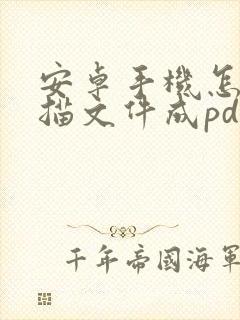 安卓手機怎
描文件成pd
千年帝國海軍